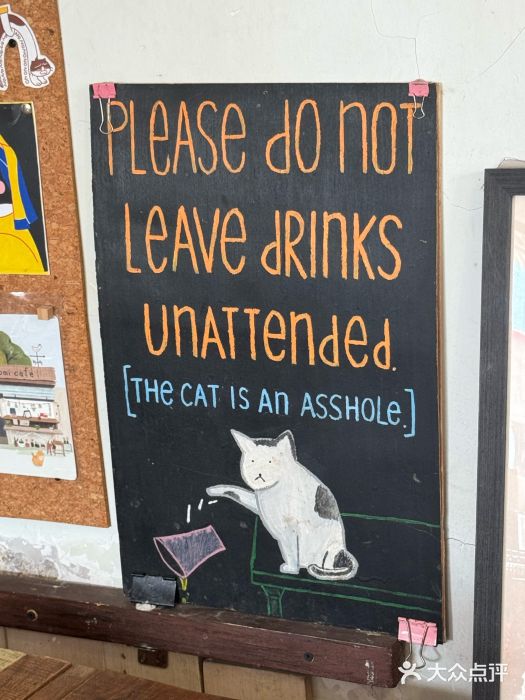 PLEASE dO nOT
LEAVE dRINKS
UnATTended.
[THE CAT IS An ASSHOLE.]
omi cafe
大众点评